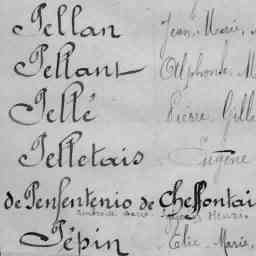 Pellan Jean, Marie,
Pellant Alphonse, M
Pellé Pierre, Gille
Pelletais Eugène
de Penfentenio de Cheffontai
Ambroise Marie Joseph Henri
Pépin Elie, Marie,